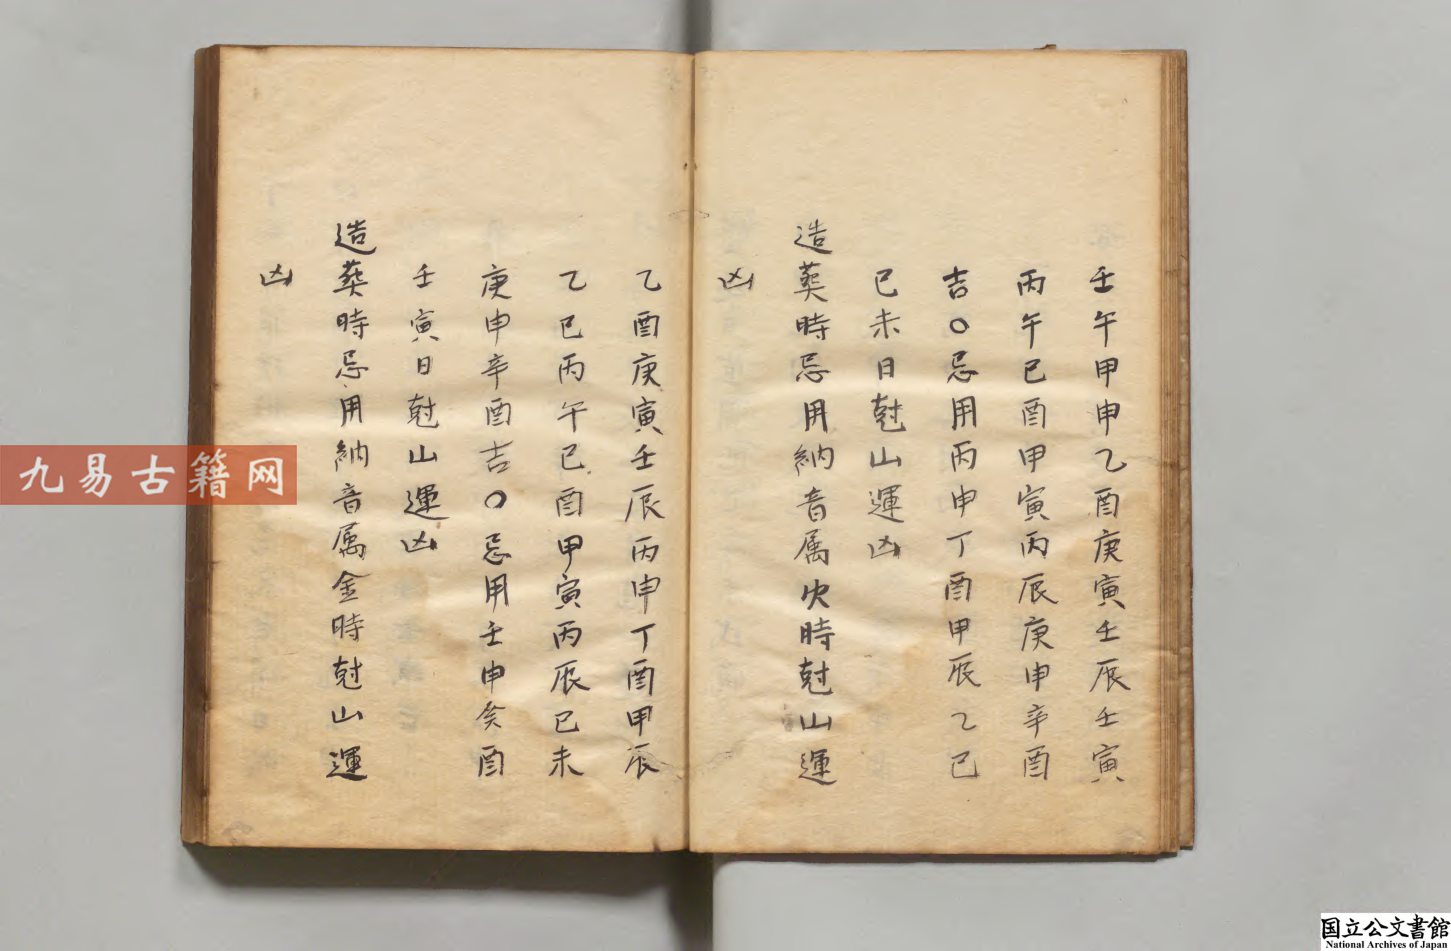 壬午甲申乙酉庚寅壬辰壬寅
丙午己酉甲寅丙辰庚申辛酉
吉○忌用丙申丁酉甲辰乙巳
己未日尅山運凶
造葬時忌用納音属火時尅山運
凶
乙酉庚寅壬辰丙申丁酉甲辰
乙巳丙午己酉甲寅丙辰己未
庚申辛酉吉○忌用壬申癸酉
壬寅日尅山運凶
造葬時忌用納音属金時尅山運
凶
九易古籍网
国立公文書館
National Archives of Japan